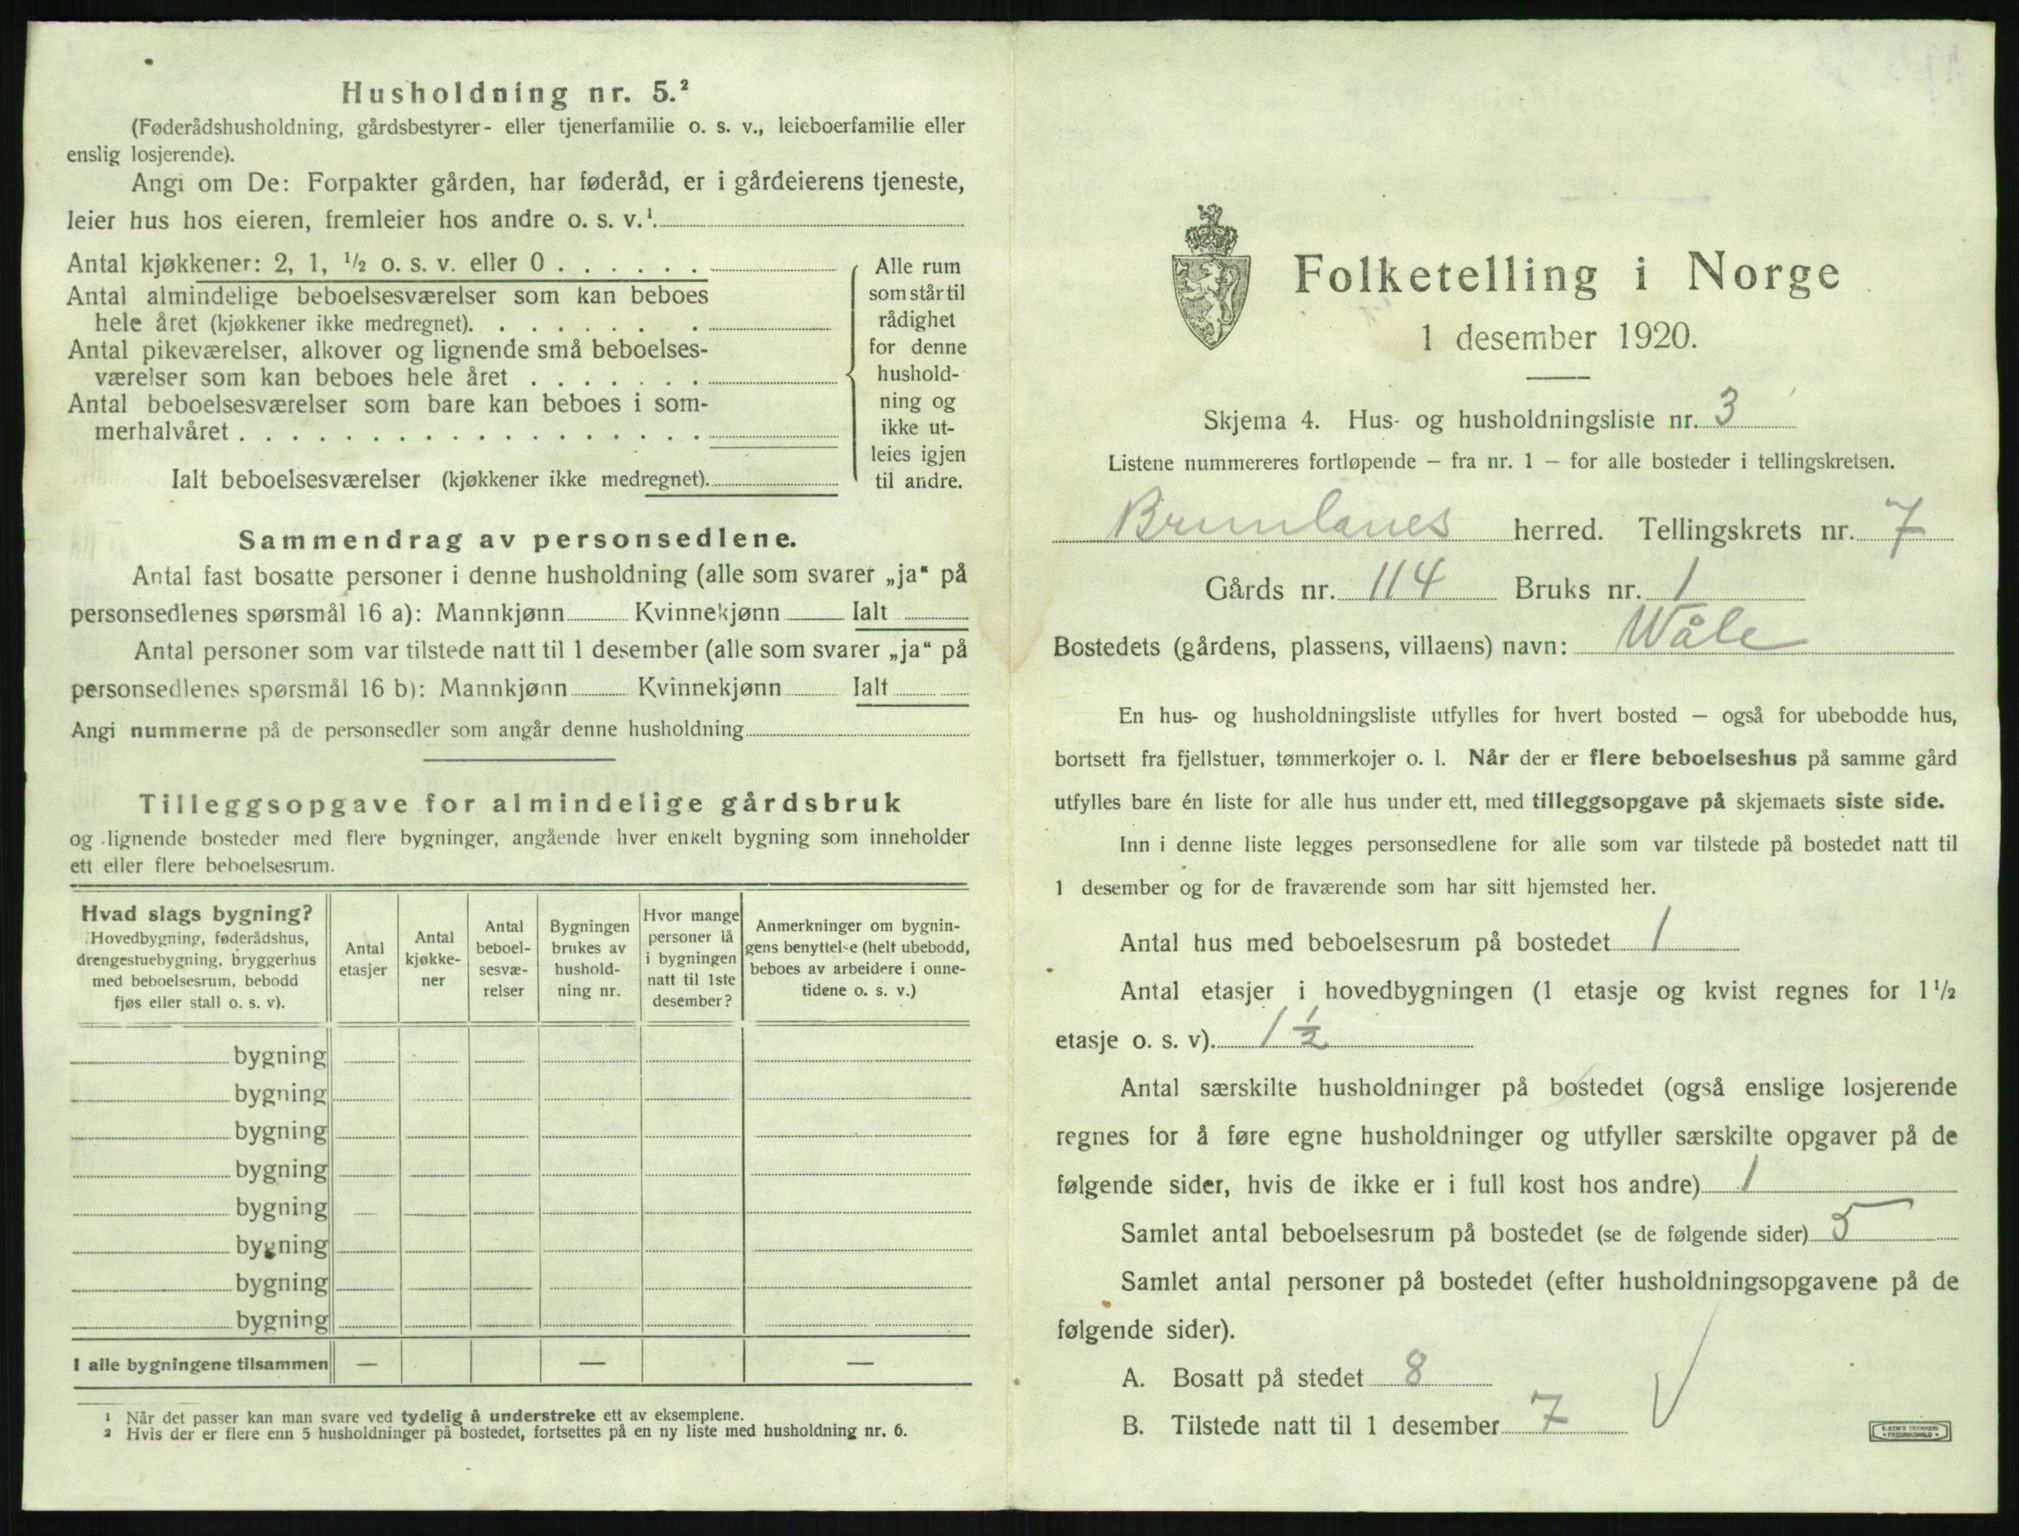 Husholdning nr. 5.²
(Føderådshusholdning, gårdsbestyrer- eller tjenerfamilie o. s. v., leieboerfamilie eller
enslig losjerende).
Angi om De: Forpakter gården, har føderåd, er i gårdeierens tjeneste,
leier hus hos eieren, fremleier hos andre o. s. v.¹
Antal kjøkkener: 2, 1, ½ o. s. v. eller 0 . . . . . .
Antal almindelige beboelsesværelser som kan beboes
hele året (kjøkkener ikke medregnet). . . . . . . . .
Antal pikeværelser, alkover og lignende små beboelses-
værelser som kan beboes hele året . . . . . . .
Antal beboelsesværelser som bare kan beboes i som-
merhalvåret . . . . . . . . . . . . . . . . . .
Ialt beboelsesværelser (kjøkkener ikke medregnet).
Alle rum
som står til
rådighet
for denne
hushold-
ning og
ikke ut-
leies igjen
til andre.
Sammendrag av personsedlene.
Antal fast bosatte personer i denne husholdning (alle som svarer „ja“ på
personsedlenes spørsmål 16 a): Mannkjønn Kvinnekjønn Ialt
Antal personer som var tilstede natt til 1 desember (alle som svarer „ja“ på
personsedlenes spørsmål 16 b): Mannkjønn Kvinnekjønn Ialt
Angi nummerne på de personsedler som angår denne husholdning
Tilleggsopgave for almindelige gårdsbruk
og lignende bosteder med flere bygninger, angående hver enkelt bygning som inneholder
ett eller flere beboelsesrum.
Hvad slags bygning?
Hovedbygning, føderådshus,
drengestuebygning, bryggerhus
med beboelsesrum, bebodd
fjøs eller stall o. s. v).
Antal
etasjer
Antal
kjøkke-
ner
Antal
beboel-
sesvæ-
relser
Bygningen
brukes av
hushold-
ning nr.
Hvor mange
personer lå
i bygningen
natt til 1ste
desember?
Anmerkninger om bygnin-
gens benyttelse (helt ubebodd,
beboes av arbeidere i onne-
tidene o. s. v.)
bygning
bygning
bygning
bygning
bygning
bygning
bygning
bygning
I alle bygningene tilsammen — — —
¹ Når det passer kan man svare ved tydelig å understreke ett av eksemplene.
² Hvis der er flere enn 5 husholdninger på bostedet, fortsettes på en ny liste med husholdning nr. 6.
Folketelling i Norge
1 desember 1920.
Skjema 4. Hus- og husholdningsliste nr. 3
Listene nummereres fortløpende – fra nr. 1 – for alle bosteder i tellingskretsen.
Brunlanes herred. Tellingskrets nr. 7
Gårds nr. 114 Bruks nr. 1
Bostedets (gårdens, plassens, villaens) navn: Wåle
En hus- og husholdningsliste utfylles for hvert bosted – også for ubebodde hus,
bortsett fra fjellstuer, tømmerkojer o. l. Når der er flere beboelseshus på samme gård
utfylles bare én liste for alle hus under ett, med tilleggsopgave på skjemaets siste side.
Inn i denne liste legges personsedlene for alle som var tilstede på bostedet natt til
1 desember og for de fraværende som har sitt hjemsted her.
Antal hus med beboelsesrum på bostedet 1
Antal etasjer i hovedbygningen (1 etasje og kvist regnes for 1½
etasje o. s. v). 1½
Antal særskilte husholdninger på bostedet (også enslige losjerende
regnes for å føre egne husholdninger og utfyller særskilte opgaver på de
følgende sider, hvis de ikke er i full kost hos andre) 1
Samlet antal beboelsesrum på bostedet (se de følgende sider) 5
Samlet antal personer på bostedet (efter husholdningsopgavene på de
følgende sider).
A. Bosatt på stedet 8
B. Tilstede natt til 1 desember 7